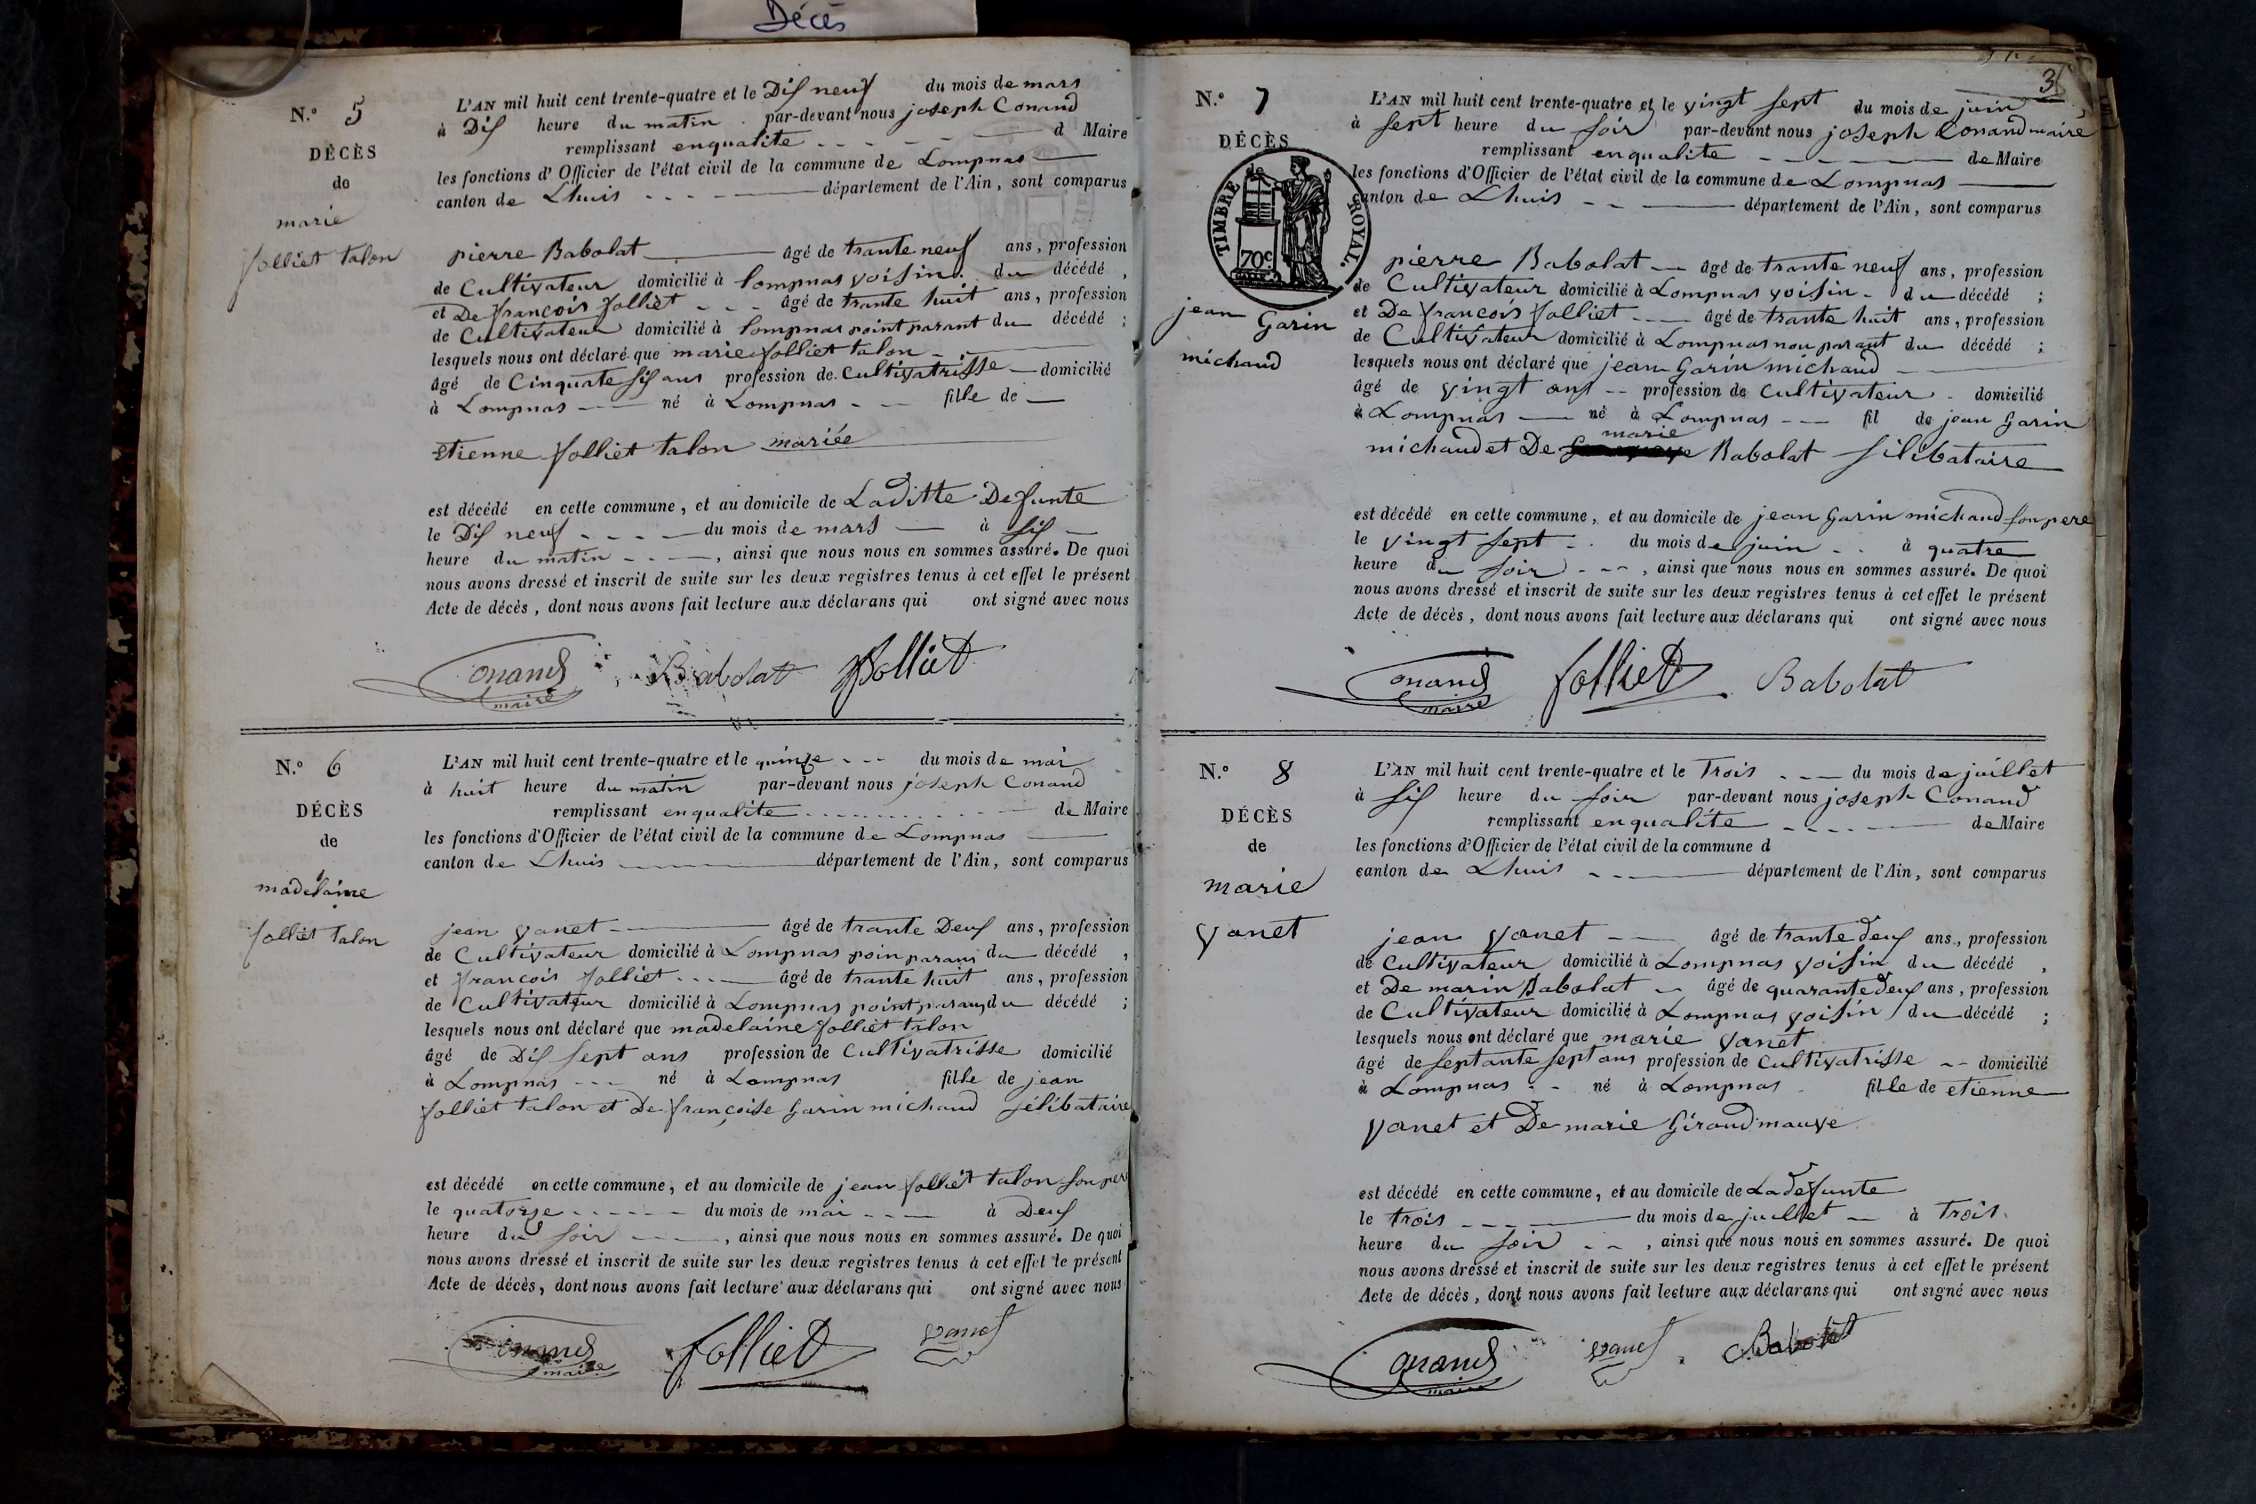 Décès
N.° 5
DÉCÈS
de
marie
folliet talon
L'AN mil huit cent trente-quatre et le Dix neuf du mois de mars
à Dix heure du matin par-devant nous joseph Conand
remplissant enqualite d Maire
les fonctions d'Officier de l'état civil de la commune de Lompnas
canton de Lhuis département de l'Ain, sont comparus
pierre Babolat âgé de trante neuf ans, profession
de Cultivateur domicilié à lompnas voisin du décédé,
et De françois folliet âgé de trante huit ans, profession
de Cultivateur domicilié à lompnas point parant du décédé;
lesquels nous ont déclaré que marie folliet talon
âgé de Cinquate six ans profession de Cultivatrisse domicilié
à Lompnas né à Lompnas fille de
etienne folliet talon mariée
est décédé en cette commune, et au domicile de Laditte Defunte
le Dix neuf du mois de mars à six
heure du matin, ainsi que nous nous en sommes assuré. De quoi
nous avons dressé et inscrit de suite sur les deux registres tenus à cet effet le présent
Acte de décès, dont nous avons fait lecture aux déclarans qui ont signé avec nous
Conand Babolat folliet
maire
N.° 6
DÉCÈS
de
madelaine
folliet talon
L'AN mil huit cent trente-quatre et le quinze du mois de mai
à huit heure du matin par-devant nous joseph Conand
remplissant enqualite de Maire
les fonctions d'Officier de l'état civil de la commune de Lompnas
canton de Lhuis département de l'Ain, sont comparus
jean vanet âgé de trante Deux ans, profession
de Cultivateur domicilié à Lompnas poin parans du décédé,
et françois folliet âgé de trante huit ans, profession
de Cultivateur domicilié à Lompnas point parans du décédé;
lesquels nous ont déclaré que madelaine folliet talon
âgé de Dix sept ans profession de Cultivatrisse domicilié
à Lompnas né à Lompnas fille de jean
folliet talon et De françoise Garin michaud sélibataire
est décédé en cette commune, et au domicile de jean folliet talon son pere
le quatorze du mois de mai à Deux
heure du soir, ainsi que nous nous en sommes assuré. De quoi
nous avons dressé et inscrit de suite sur les deux registres tenus à cet effet le présent
Acte de décès, dont nous avons fait lecture aux déclarans qui ont signé avec nous
Conand folliet vanet
maire
36
N.° 7
DÉCÈS
TIMBRE ROYAL.
70c.
jean Garin
michaud
L'AN mil huit cent trente-quatre et le vingt sept du mois de juin
à sept heure du soir par-devant nous joseph Conand maire
remplissant enqualite de Maire
les fonctions d'Officier de l'état civil de la commune de Lompnas
canton de Lhuis département de l'Ain, sont comparus
pierre Babolat âgé de trante neuf ans, profession
de Cultivateur domicilié à Lompnas voisin du décédé;
et De françois folliet âgé de trante huit ans, profession
de Cultivateur domicilié à Lompnas non parant du décédé;
lesquels nous ont déclaré que jean Garin michaud
âgé de vingt ans profession de Cultivateur domicilié
à Lompnas né à Lompnas fil de jean Garin
marie
michaud et De Babolat silibataire
est décédé en cette commune, et au domicile de jean Garin michaud son pere
le vingt sept du mois de juin à quatre
heure du soir, ainsi que nous nous en sommes assuré. De quoi
nous avons dressé et inscrit de suite sur les deux registres tenus à cet effet le présent
Acte de décès, dont nous avons fait lecture aux déclarans qui ont signé avec nous
Conand folliet Babolat
maire
N.° 8
DÉCÈS
de
marie
vanet
L'AN mil huit cent trente-quatre et le Trois du mois de juillet
à six heure du soir par-devant nous joseph Conand
remplissant enqualite de Maire
les fonctions d'Officier de l'état civil de la commune d
canton de Lhuis département de l'Ain, sont comparus
jean vanet âgé de trante deux ans, profession
de Cultivateur domicilié à Lompnas voisin du décédé,
et De marin Babolat âgé de quarante deux ans, profession
de Cultivateur domicilié à Lompnas voisin du décédé;
lesquels nous ont déclaré que marie vanet
âgé de septante sept ans profession de Cultivatrisse domicilié
à Lompnas né à Lompnas fille de etienne
vanet et De marie Giroud mauve
est décédé en cette commune, et au domicile de La defunte
le trois du mois de juillet à trois
heure du soir, ainsi que nous nous en sommes assuré. De quoi
nous avons dressé et inscrit de suite sur les deux registres tenus à cet effet le présent
Acte de décès, dont nous avons fait lecture aux déclarans qui ont signé avec nous
Conand vanet Babolat
maire